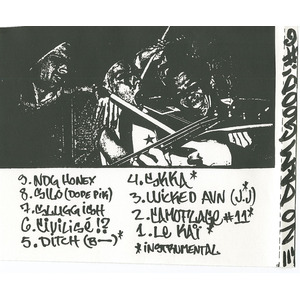 9. NDG HONEX
8. SILO (DOPE PIK)
7. SLUGGISH
6. CIVILISÉ !?
5. DITCH (B—)*
4. SKKA*
3. WICKED AVN (J.J)
2. CAMOFLAGE #11*
1. LE KAÏ*
*INSTRUMENTAL